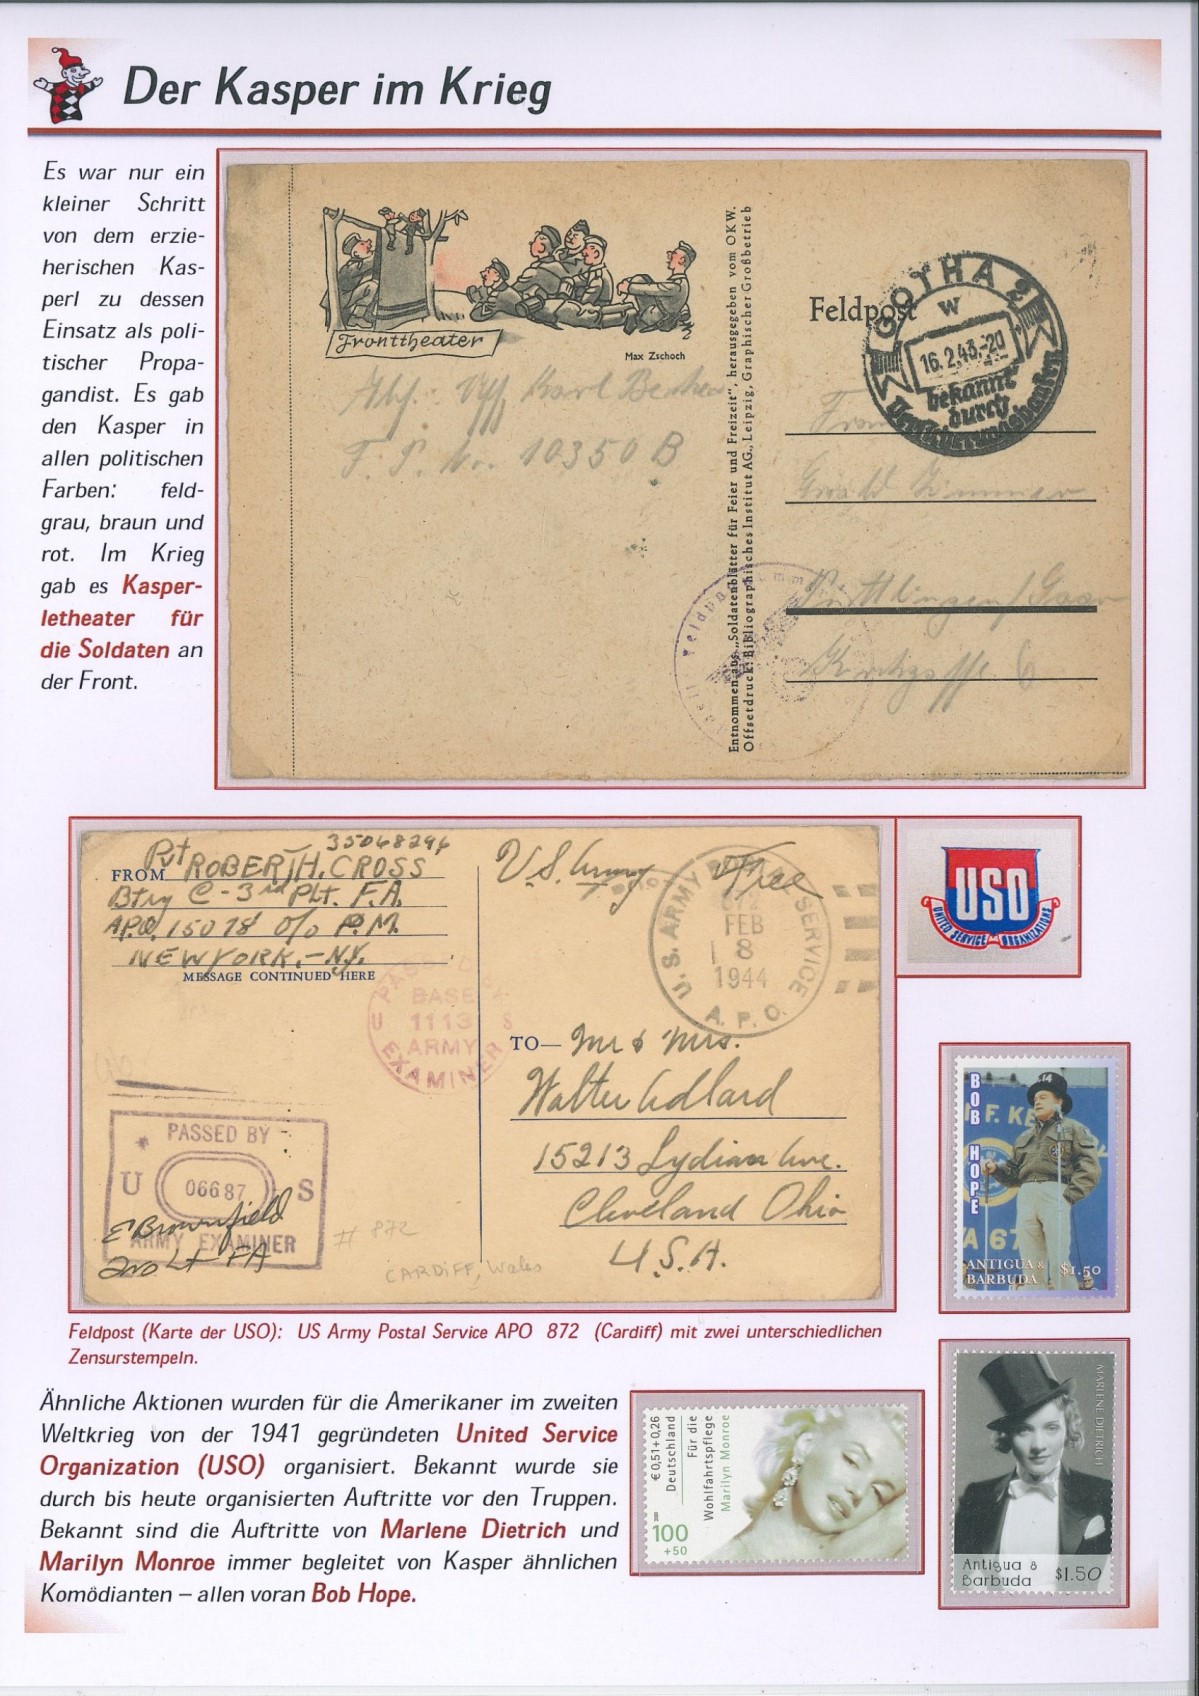 Der Kasper im Krieg
Es war nur ein
kleiner Schritt
von dem erzie-
herischen Kas-
perl zu dessen
Einsatz als poli-
tischer Propa-
gandist. Es gab
den Kasper in
allen politischen
Farben: feld-
grau, braun und
rot. Im Krieg
gab es Kasper-
letheater für
die Soldaten an
der Front.
Fronttheater
Max Zschoch
Karl
F. P. Nr. 10350 B
Entnommen aus „Soldatenblätter für Feier und Freizeit“, herausgegeben vom OKW.
Offsetdruck: Bibliographisches Institut AG., Leipzig, Graphischer Großbetrieb
Feldpost
GOTHA 2
W
16.2.43.-20
bekannt
durch
6
35048294
Pvt ROBERT H. CROSS
FROM
Btry C - 3rd Plt. F.A.
A.P.O. 15078 c/o P.M.
NEW YORK, - N.Y.
MESSAGE CONTINUED HERE
U.S. Army
Free
U.S. ARMY POSTAL SERVICE
872
FEB
8
1944
A.P.O.
PASSED BY
BASE
1113
U S
ARMY
EXAMINER
TO— Mr & Mrs.
Walter Adlard
15213 Lydian Ave.
Cleveland Ohio
U.S.A.
PASSED BY
U 06687 S
ARMY EXAMINER
E Brownfield
2nd Lt FA
# 872
CARDIFF, Wales
USO
UNITED SERVICE ORGANIZATIONS
BOB HOPE
14
F. KE
A 67
ANTIGUA &
BARBUDA $1.50
Feldpost (Karte der USO): US Army Postal Service APO 872 (Cardiff) mit zwei unterschiedlichen
Zensurstempeln.
Ähnliche Aktionen wurden für die Amerikaner im zweiten
Weltkrieg von der 1941 gegründeten United Service
Organization (USO) organisiert. Bekannt wurde sie
durch bis heute organisierten Auftritte vor den Truppen.
Bekannt sind die Auftritte von Marlene Dietrich und
Marilyn Monroe immer begleitet von Kasper ähnlichen
Komödianten – allen voran Bob Hope.
€ 0,51+0,26
Deutschland
Für die
Wohlfahrtspflege
Marilyn Monroe
100
+50
MARLENE DIETRICH
Antigua &
Barbuda $1.50